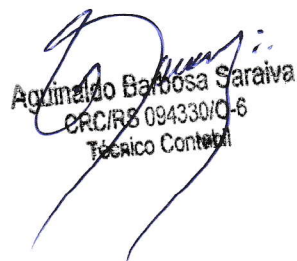 Aguinaldo Barbosa Saraiva
CRC/RS 094330/O-6
Técnico Contábil